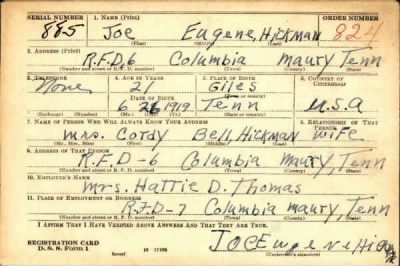 SERIAL NUMBER 1. NAME (Print) ORDER NUMBER
885 Joe Eugene, Hickman 824
(First) (Middle) (Last)
2. ADDRESS (Print)
R.F.D,6 Columbia Maury Tenn
(Number and street or R. F. D. number) (Town) (County) (State)
3. TELEPHONE 4. AGE IN YEARS 5. PLACE OF BIRTH 6. COUNTRY OF CITIZENSHIP
None 2 Giles
DATE OF BIRTH (Town or county)
6 26 1919 Tenn U.S.A
(Exchange) (Number) (Mo.) (Day) (Yr.) (State or country)
7. NAME OF PERSON WHO WILL ALWAYS KNOW YOUR ADDRESS 8. RELATIONSHIP OF THAT PERSON
Mrs. Cordy Bell Hickman wife
(Mr., Mrs., Miss) (First) (Middle) (Last)
9. ADDRESS OF THAT PERSON
R.F.D-6 Columbia Maury, Tenn
(Number and street or R. F. D. number) (Town) (County) (State)
10. EMPLOYER'S NAME
Mrs. Hattie D. Thomas
11. PLACE OF EMPLOYMENT OR BUSINESS
R.F.D-7 Columbia Maury, Tenn
(Number and street or R. F. D. number) (Town) (County) (State)
I AFFIRM THAT I HAVE VERIFIED ABOVE ANSWERS AND THAT THEY ARE TRUE.
REGISTRATION CARD
D. S. S. Form 1
JOE Eugene Hick
(Registrant's signature)